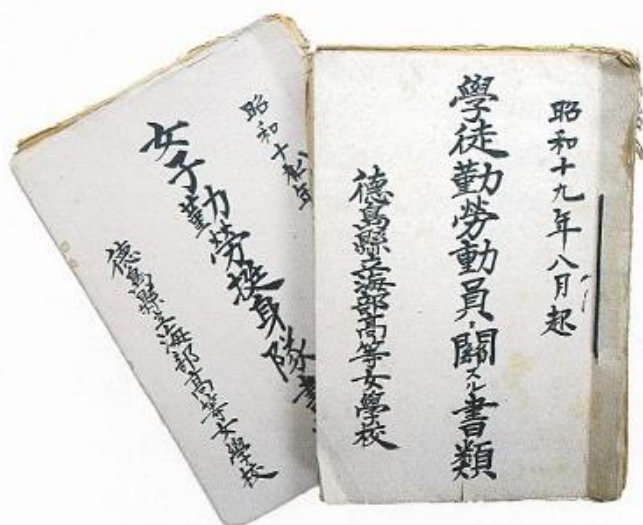 昭和十九年八月起
學徒勤勞動員ニ關スル書類
德島縣立海部高等女學校
昭和十九年
女子勤勞挺身隊書
德島縣立海部高等女學校